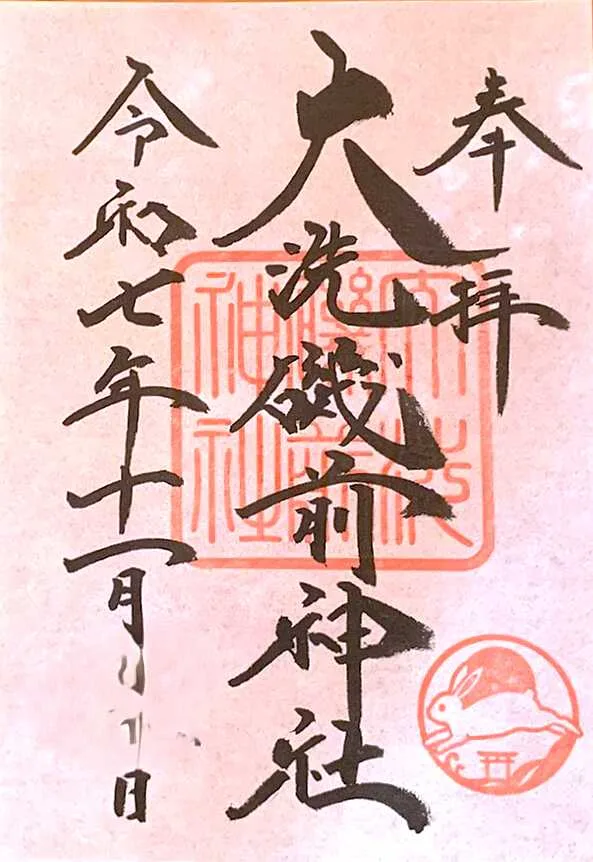 奉拝
大洗磯前神社
令和七年十一月
日
大洗磯前神社